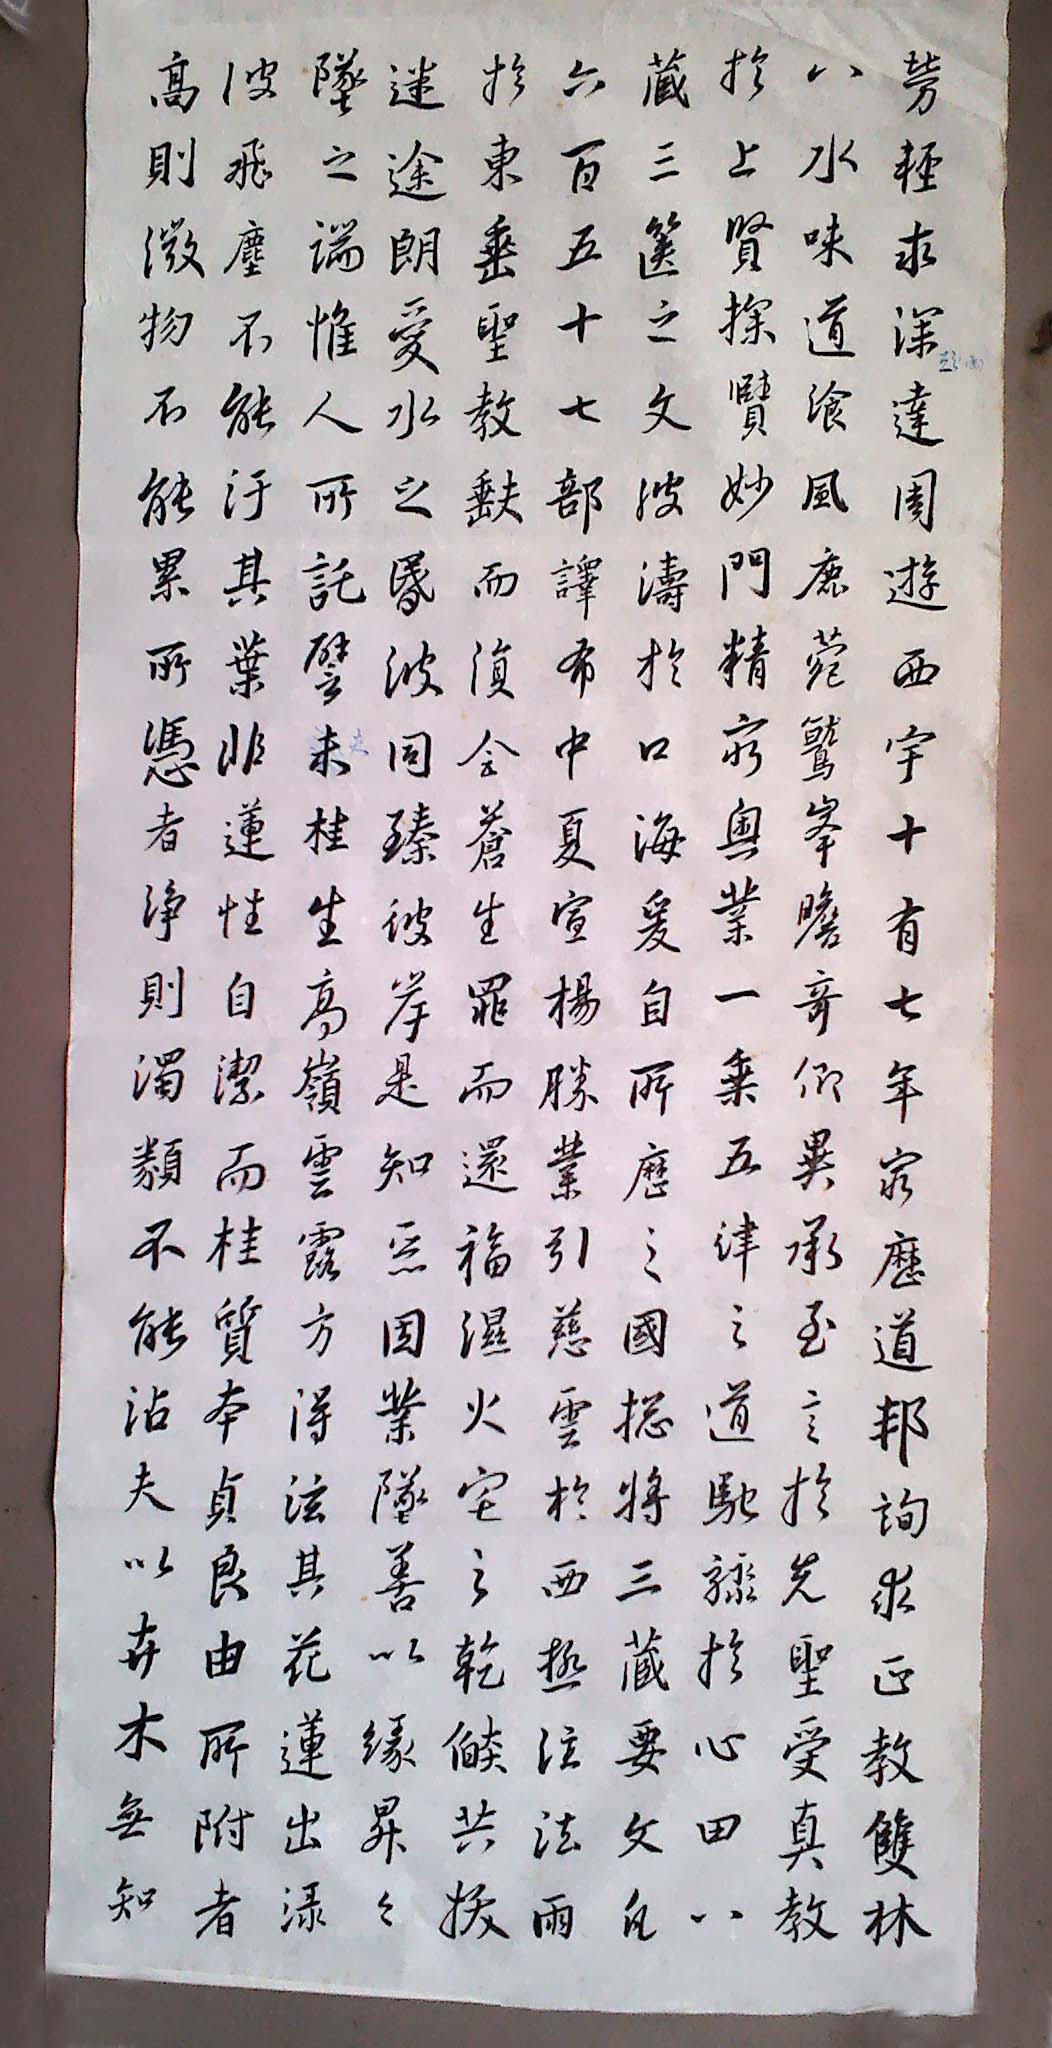 勞輕求深達周遊西宇十有七年窮歷道邦詢求正教雙林
八水味道飡風鹿菀鷲峯瞻奇仰異承至言於先聖受真教
於上賢探賾妙門精窮奧業一乘五律之道馳驟於心田八
藏三篋之文波濤於口海爰自所歷之國揔將三藏要文凡
六百五十七部譯布中夏宣楊勝業引慈雲於西極注法雨
於東垂聖教缺而復全蒼生罪而還福濕火宅之乾燄共拔
迷途朗愛水之昏波同臻彼岸是知惡因業墜善以緣昇々
墜之端惟人所託譬未桂生高嶺雲露方得泫其花蓮出淥
夫
波飛塵不能汙其葉非蓮性自潔而桂質本貞良由所附者
高則微物不能累所憑者淨則濁類不能沾夫以卉木無知